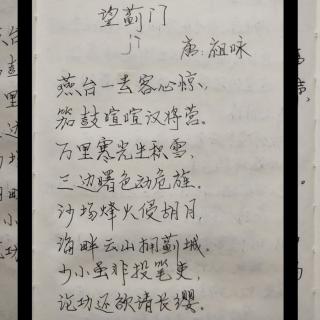 望蓟门
唐:祖咏
燕台一去客心惊,
笳鼓喧喧汉将营。
万里寒光生积雪,
三边曙色动危旌。
沙场烽火侵胡月,
海畔云山拥蓟城。
少小虽非投笔吏,
论功还欲请长缨。